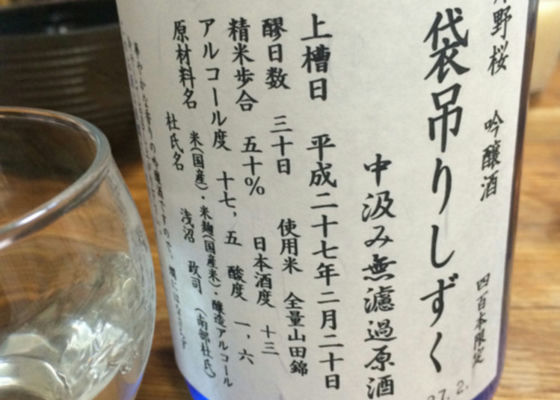 野桜 吟醸酒 四百本限定
袋吊りしずく
27.2.
中汲み無濾過原酒
上槽日 平成二十七年二月二十日
醪日数 三十日 使用米 全量山田錦
精米歩合 五十% 日本酒度 十三
アルコール度 十七,五 酸度 一,六
原材料名 米(国産)・米麹(国産米)・醸造アルコール
杜氏名 浅沼 政司 (南部杜氏)